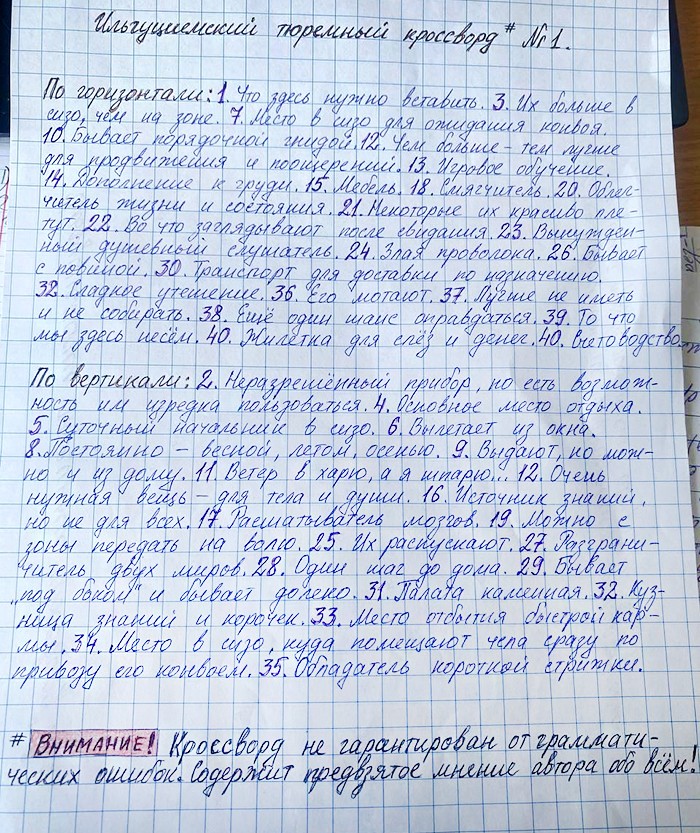 Ильгуциемский тюремный кроссворд # №1.
По горизонтали: 1. Что здесь нужно вставить. 3. Их больше в
сизо, чем на зоне. 7. Место в сизо для ожидания конвоя.
10. Бывает порядочной гнидой. 12. Чем больше - тем лучше
для продвижения и поощерений. 13. Игровое обучение.
14. Дополнение к груди. 15. Мебель. 18. Смягчитель. 20. Облег-
читель жизни и состояния. 21. Некоторые их красиво пле-
тут. 22. Во что заглядывают после свидания. 23. Вынужден-
ный душевный слушатель. 24. Злая проволока. 26. Бывает
с повиной. 30. Транспорт для доставки по назначению.
32. Сладкое утешение. 36. Его мотают. 37. Лучше не иметь
и не собирать. 38. Ещё один шанс оправдаться. 39. То что
мы здесь несём. 40. Жилетка для слёз и денег. 40. Скотоводство
По вертикали: 2. Неразрешённый прибор, но есть возмож-
ность им изредка пользоваться. 4. Основное место отдыха.
5. Суточный начальник в сизо. 6. Вылетает из окна.
8. Постоянно - весной, летом, осенью. 9. Выдают, но мож-
но и из дому. 11. Ветер в харю, а я шпарю... 12. Очень
нужная вещь - для тела и души. 16. Источник знаний,
но не для всех. 17. Расшатыватель мозгов. 19. Можно с
зоны передать на волю. 25. Их распускают. 27. Разграни-
читель двух миров. 28. Один шаг до дома. 29. Бывает
"под боком" и бывает далеко. 31. Палата каменная. 32. Куз-
ница знаний и корочек. 33. Место отбытия быстрой кар-
мы. 34. Место в сизо, куда помещают чела сразу по
привозу его конвоем. 35. Обладатель короткой стрижки.
# ВНИМАНИЕ! Кроссворд не гарантирован от граммати-
ческих ошибок. Содержит предвзятое мнение автора обо всём!